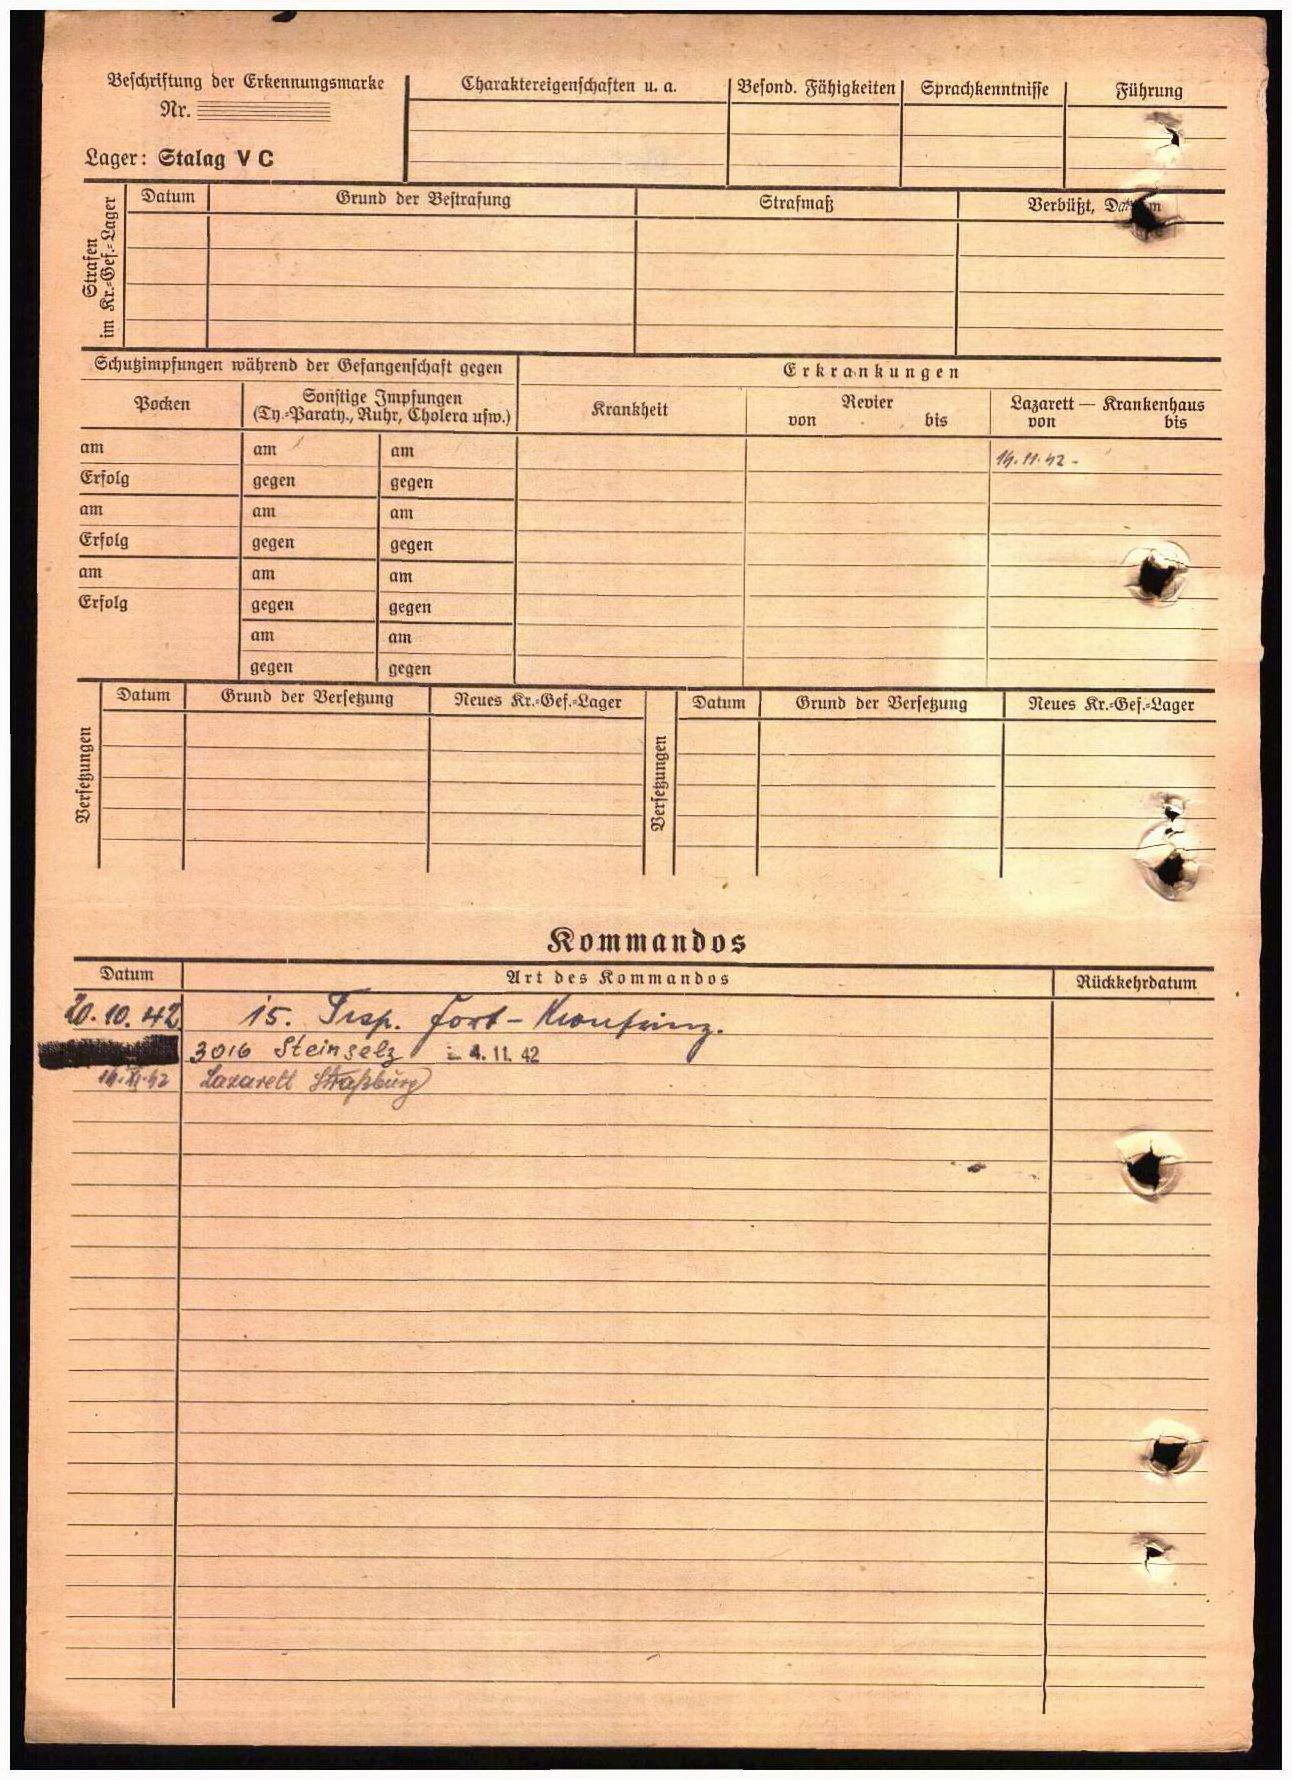 Beschriftung der Erkennungsmarke
Nr.
Lager: Stalag V C
Charaktereigenschaften u. a.
Besond. Fähigkeiten
Sprachkenntnisse
Führung
Strafen
im Kr.=Gef.=Lager
Datum
Grund der Bestrafung
Strafmaß
Verbüßt,
Schutzimpfungen während der Gefangenschaft gegen
Erkrankungen
Pocken
Sonstige Impfungen
(Ty.=Paraty., Ruhr, Cholera usw.)
Krankheit
Revier
von bis
Lazarett — Krankenhaus
von bis
am am am
14.11.42 -
Erfolg gegen gegen
am am am
Erfolg gegen gegen
am am am
Erfolg gegen gegen
am am
gegen gegen
Versetzungen
Datum Grund der Versetzung Neues Kr.=Gef.=Lager
Versetzungen
Datum Grund der Versetzung Neues Kr.=Gef.=Lager
Kommandos
Datum Art des Kommandos Rückkehrdatum
20.10.42 15. Trsp. Fort - Kronprinz.
3016 Steinselz - 4. 11. 42
14.XI.42 Lazarett Straßburg